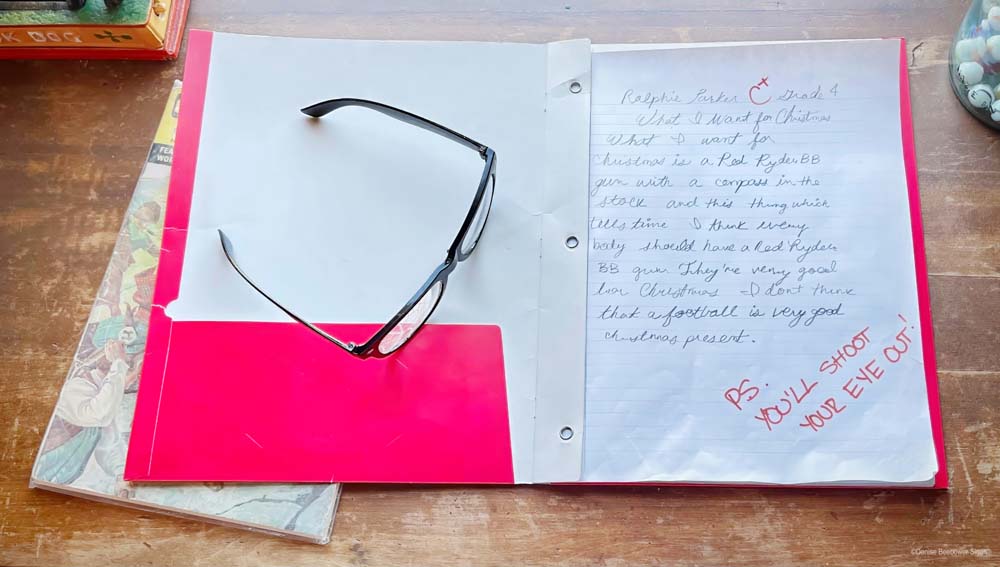 OK DOG
FEA
WO
Ralphie Parker C+ Grade 4
What I Want for Christmas
What I want for
Christmas is a Red Ryder BB
gun with a compass in the
stock and this thing which
tells time I think every
body should have a Red Ryder
BB gun They're very good
for Christmas I don't think
that a football is very good
christmas present.
PS.
YOU'LL SHOOT
YOUR EYE OUT!